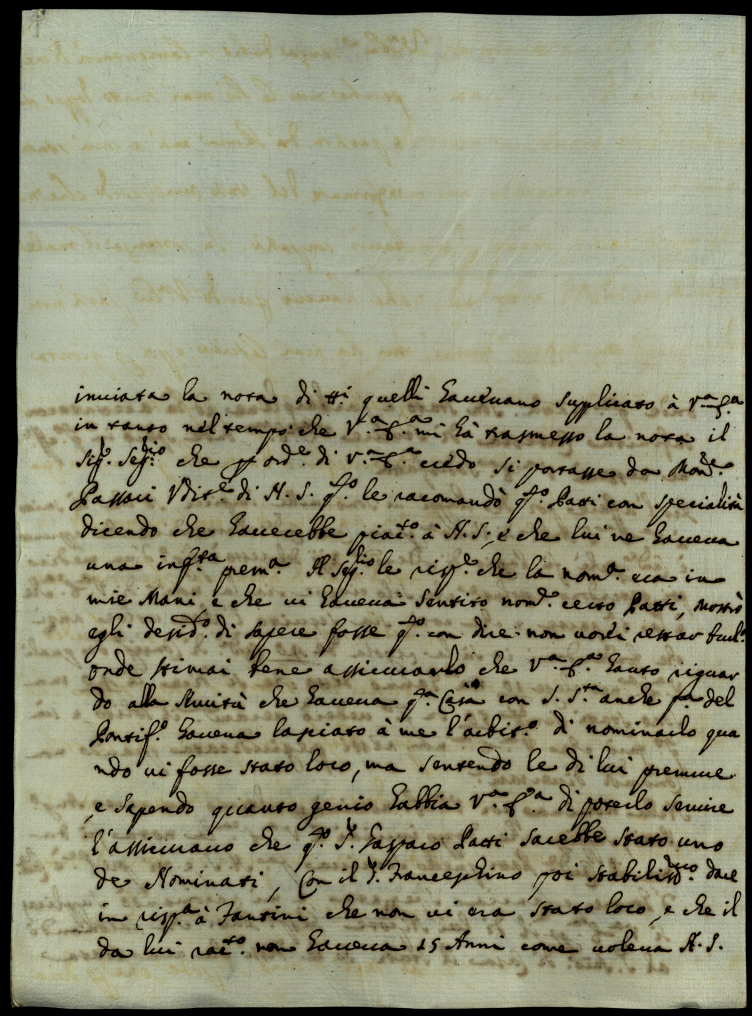 inviata la nota di tti quelli havevano suplicato à V.a E.a
in tanto nel tempo che V.a E.a mi hà trasmesso la nota il
Sig.r Seg.rio che p ord.e di V.a E.a credo si portasse da Mon.re
Passari Udit.e di N. S. q.to le racomandò q.to Patti con specialità
dicendo che haverebbe piac.to à N. S., e che lui ne haveva
una inf.ta prem.a Il Seg.rio le risp.e che la nom.e era in
mie Mani, e che vi haveva sentito nom.e certo Patti, mostrò
egli desid.o di sapere fosse q.to con dire non vorrei restar
onde stimai bene assicurarlo che V.a E.a hauto riguar
do alla Servitù che haveva q.ta Casa con S. S.tà anche p.a del
Pontif.o haveva lasciato à me l'arbit.o di nominarlo qua
ndo vi fosse stato loco, ma sentendo le di lui premure
, e sapendo quanto genio habbia V.a E.a di poterlo servire
l'assicuravo che q.to S. Gasparo Patti sarebbe stato uno
de Nominati, Con il S. Franceschino poi stabilissimo dare
in risp.a à Fantini che non vi era stato loco, e che il
da lui rac.to non haveva 15 Anni come voleva N. S.